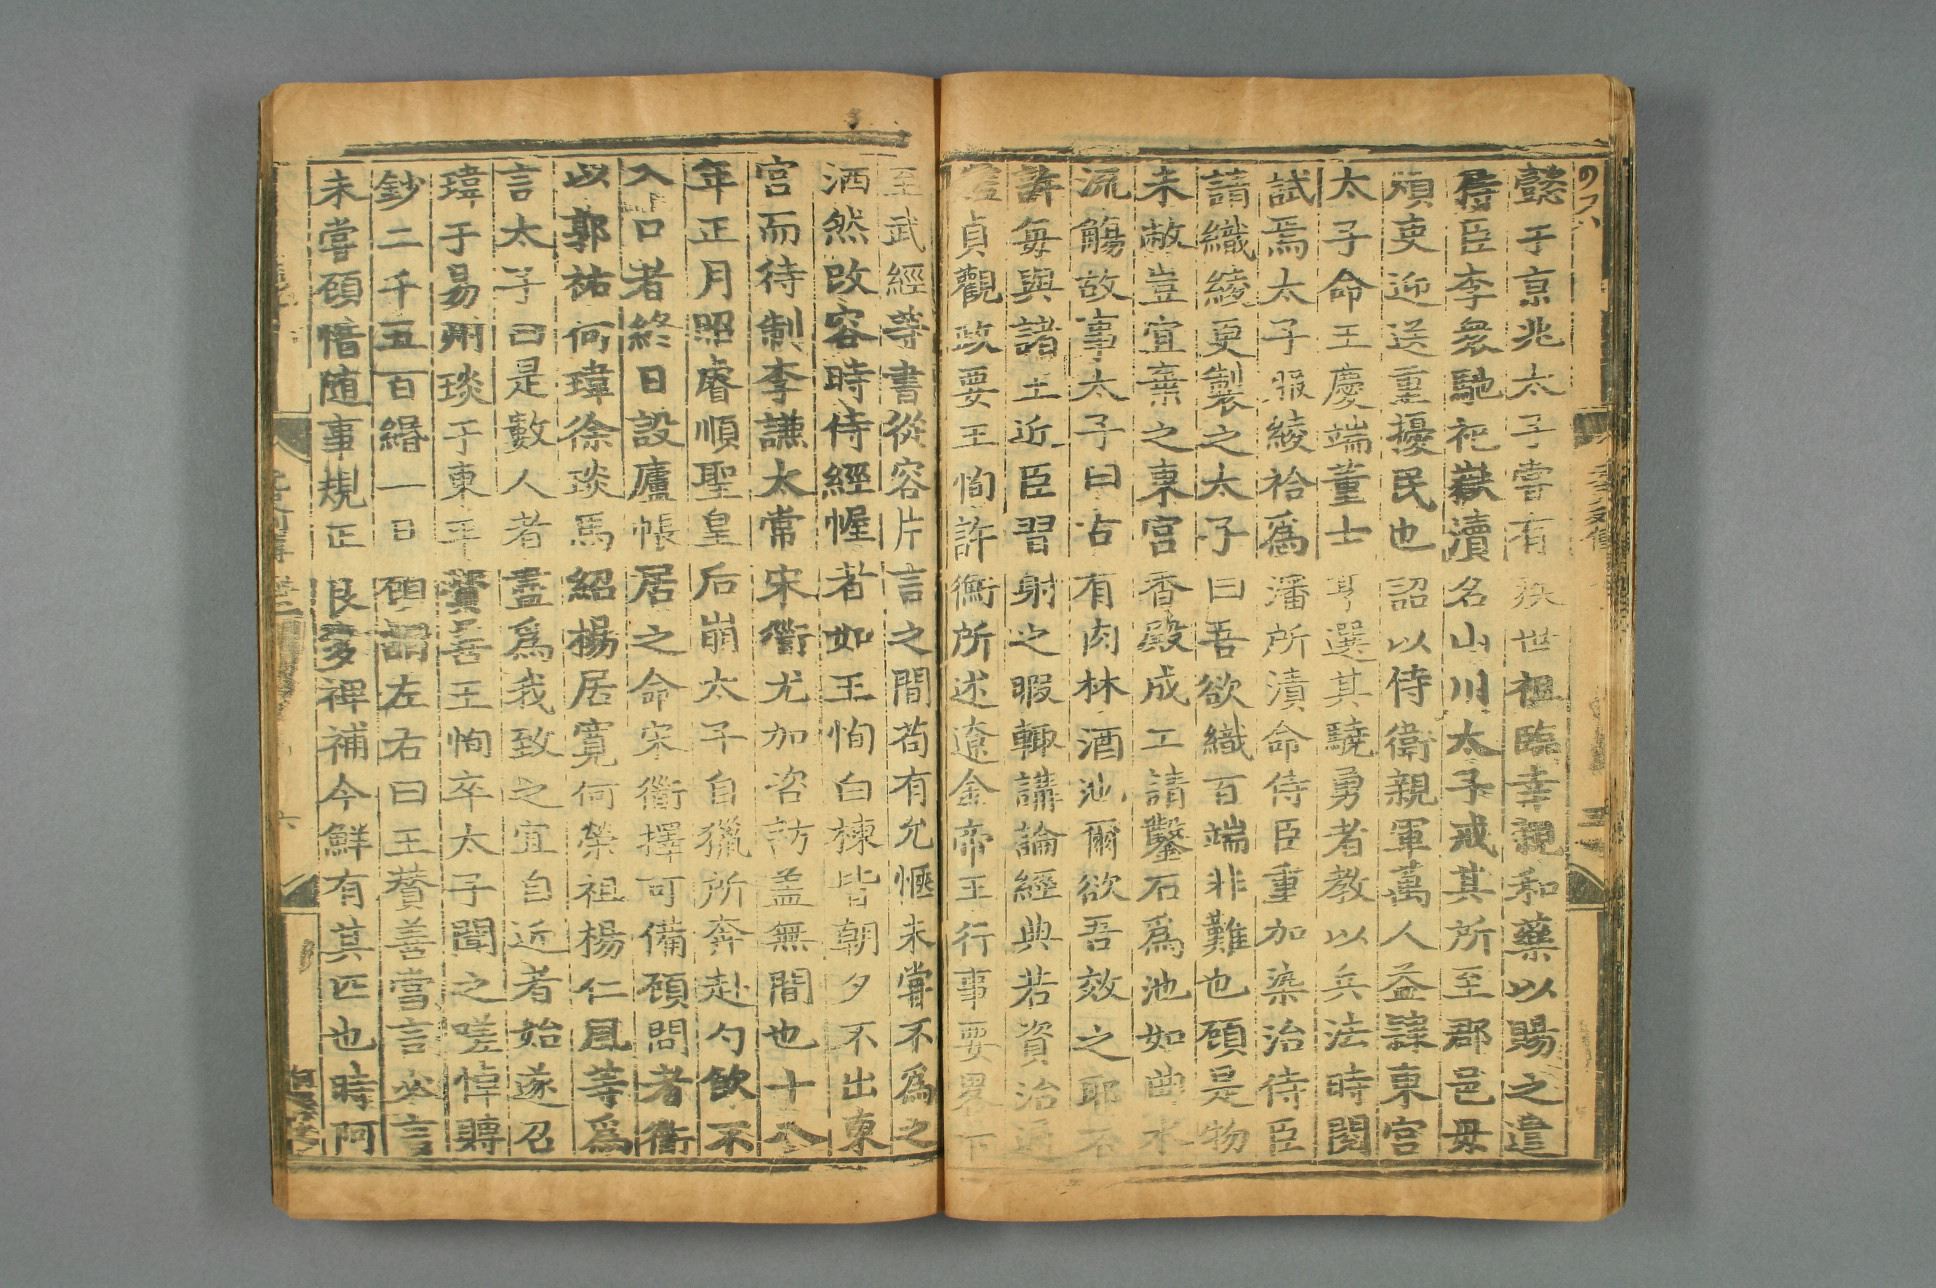 懿于京兆太子嘗有疾世祖臨幸親和藥以賜之遣
侍臣李衆馳祀嶽瀆名山川太子戒其所至郡邑毋
煩吏迎送重擾民也詔以侍衛親軍萬人益隷東宮
太子命王慶端董士亨選其驍勇者教以兵法時閱
試焉太子服綾袷爲瀋所漬命侍臣重加染治侍臣
請織綾更製之太子曰吾欲織百端非難也顧是物
未敝豈宜棄之東宮香殿成工請鑿石爲池如曲水
流觴故事太子曰古有肉林酒池爾欲吾效之耶不
許每與諸王近臣習射之暇輒講論經典若資治通
鑑貞觀政要王恂許衡所述遼金帝王行事要畧下
至武經等書從容片言之間苟有允愜未嘗不爲之
洒然改容時侍經幄者如王恂白棟皆朝夕不出東
宮而待制李謙太常宋衜尤加咨訪盖無間也十八
年正月昭睿順聖皇后崩太子自獵所奔赴勺飲不
入口者終日設廬帳居之命宋衜擇可備顧問者衜
以郭祐何瑋徐琰馬紹楊居寬何榮祖楊仁風等爲
言太子曰是數人者盡爲我致之宜自近者始遂召
瑋于易州琰于東平贊善王恂卒太子聞之嗟悼賻
鈔二千五百緡一日顧謂左右曰王贊善當言必言
未嘗顧惜随事規正良多裨補今鮮有其匹也時阿